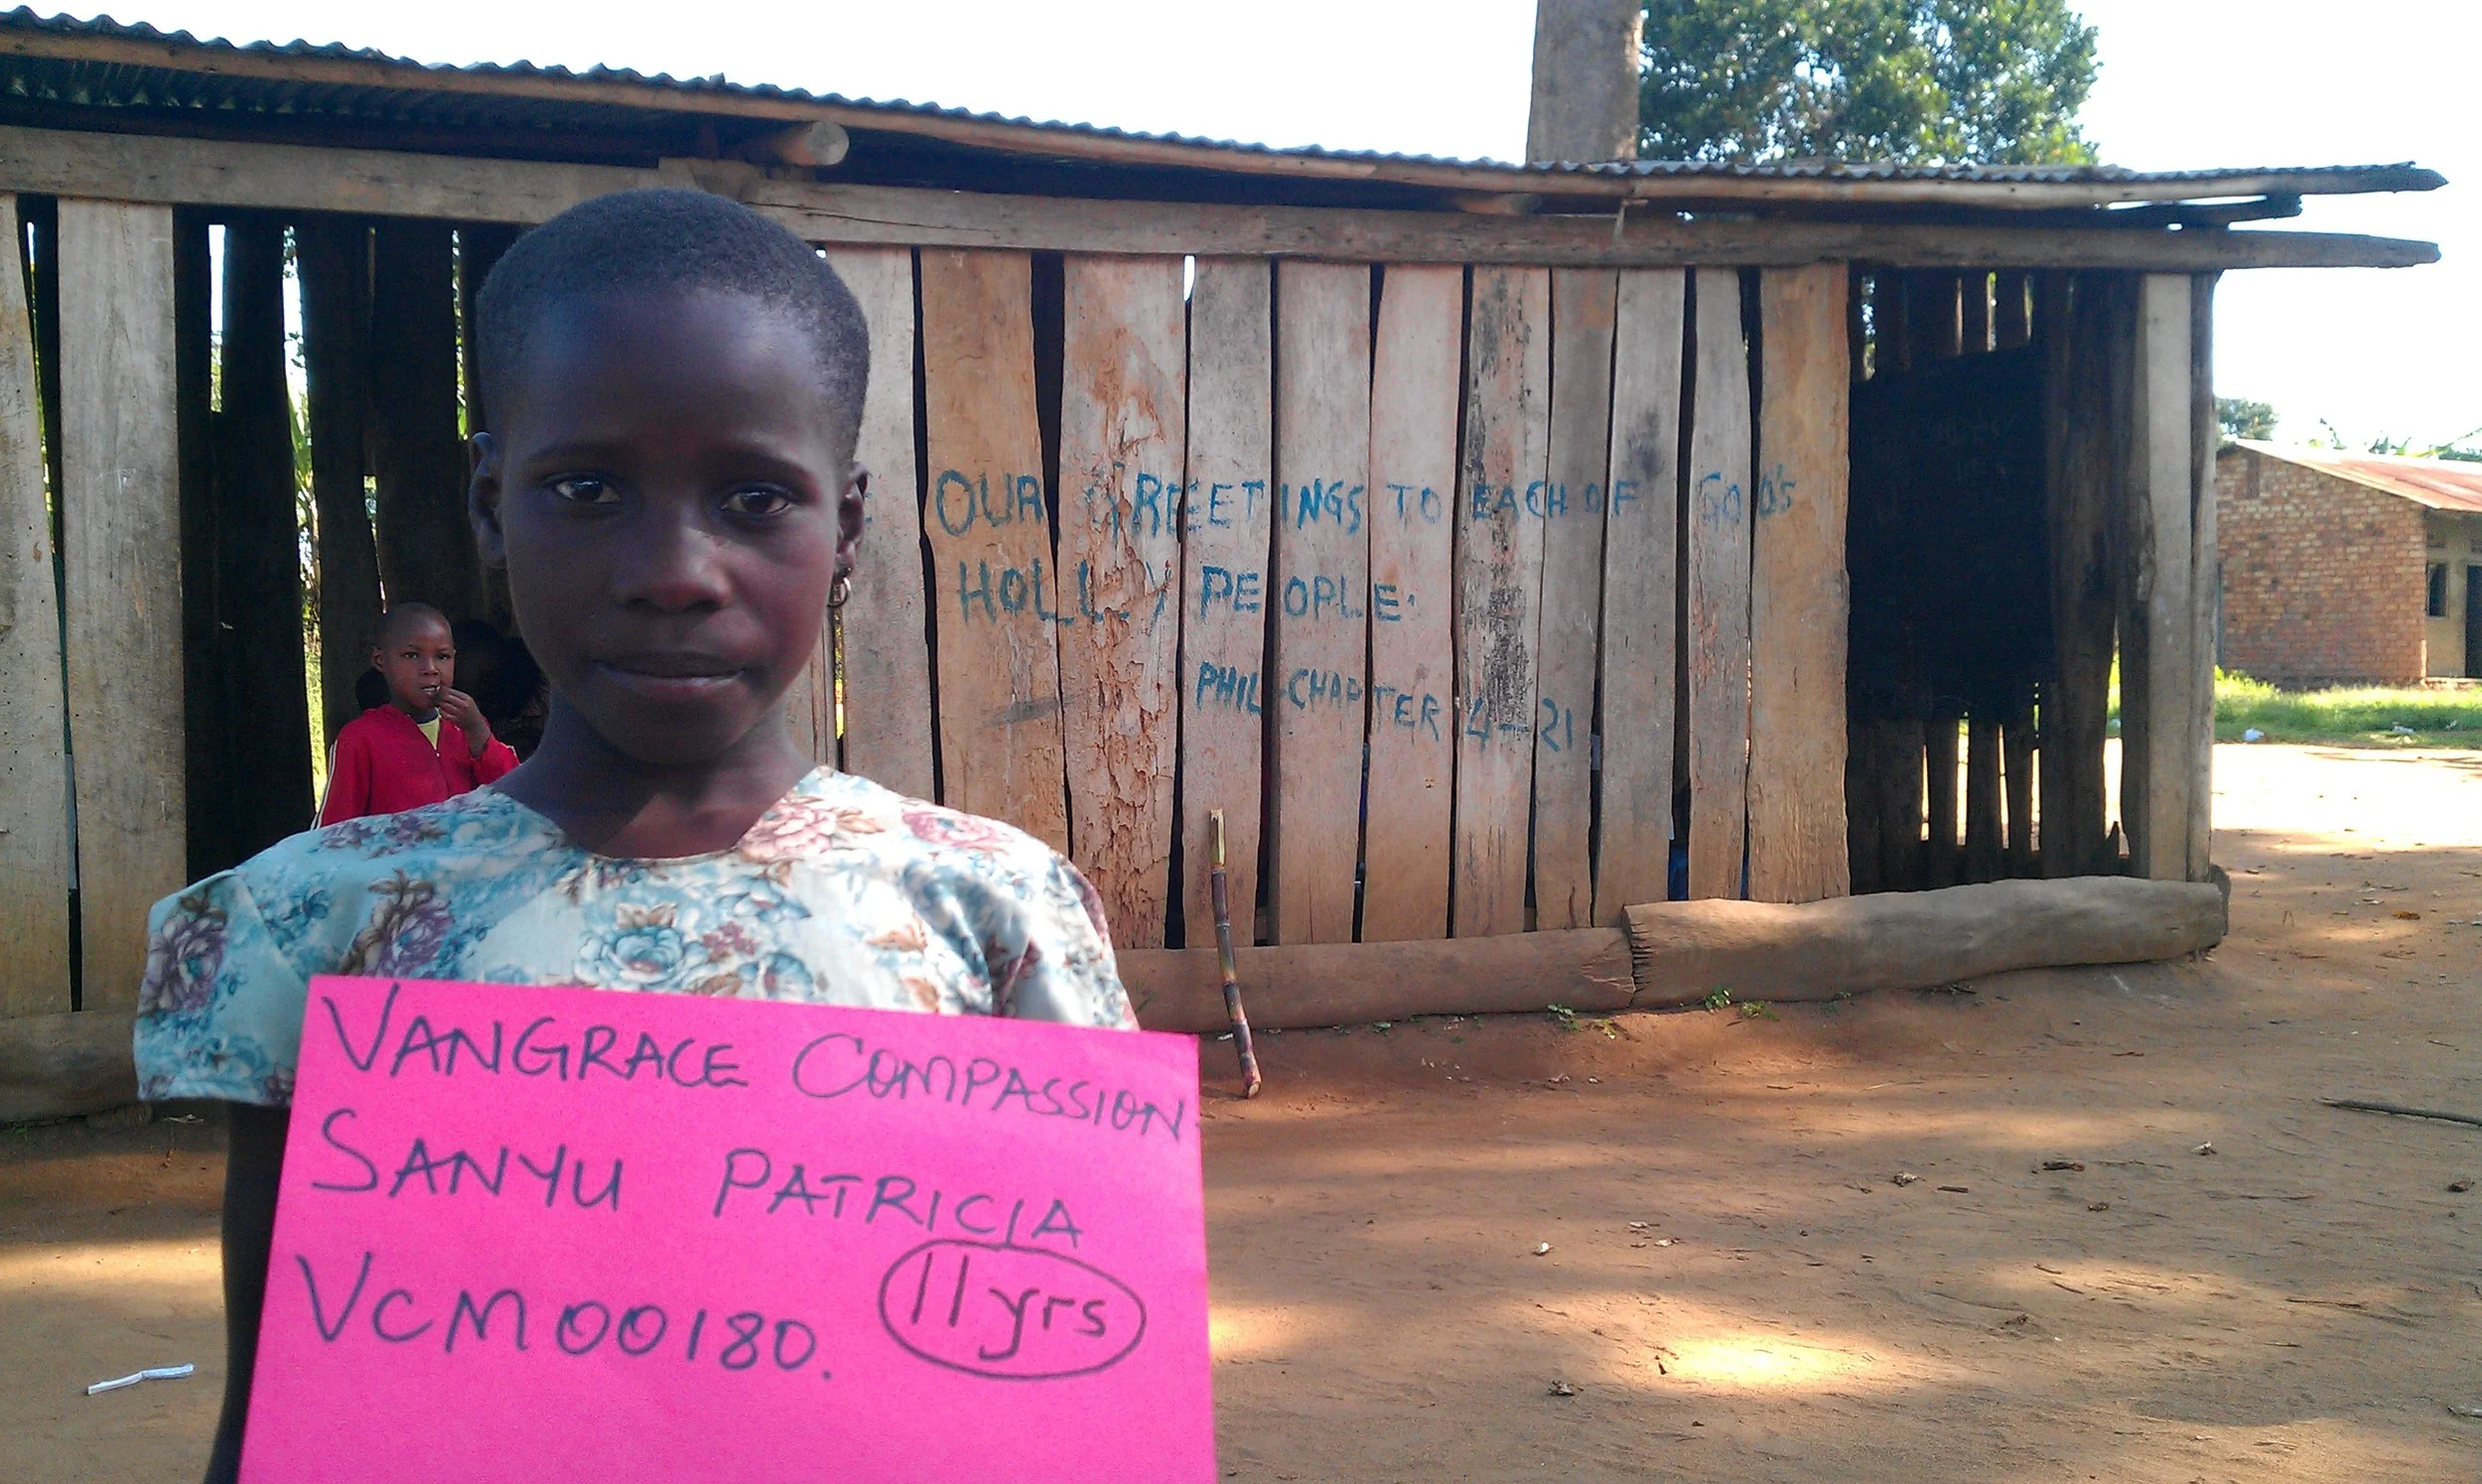 OUR GREEETINGS TO EACH OF GOD'S
HOLLY PEOPLE.
PHIL CHAPTER 4-21
VANGRACE COMPASSION
SANYU PATRICIA
VCM00180. 11yrs